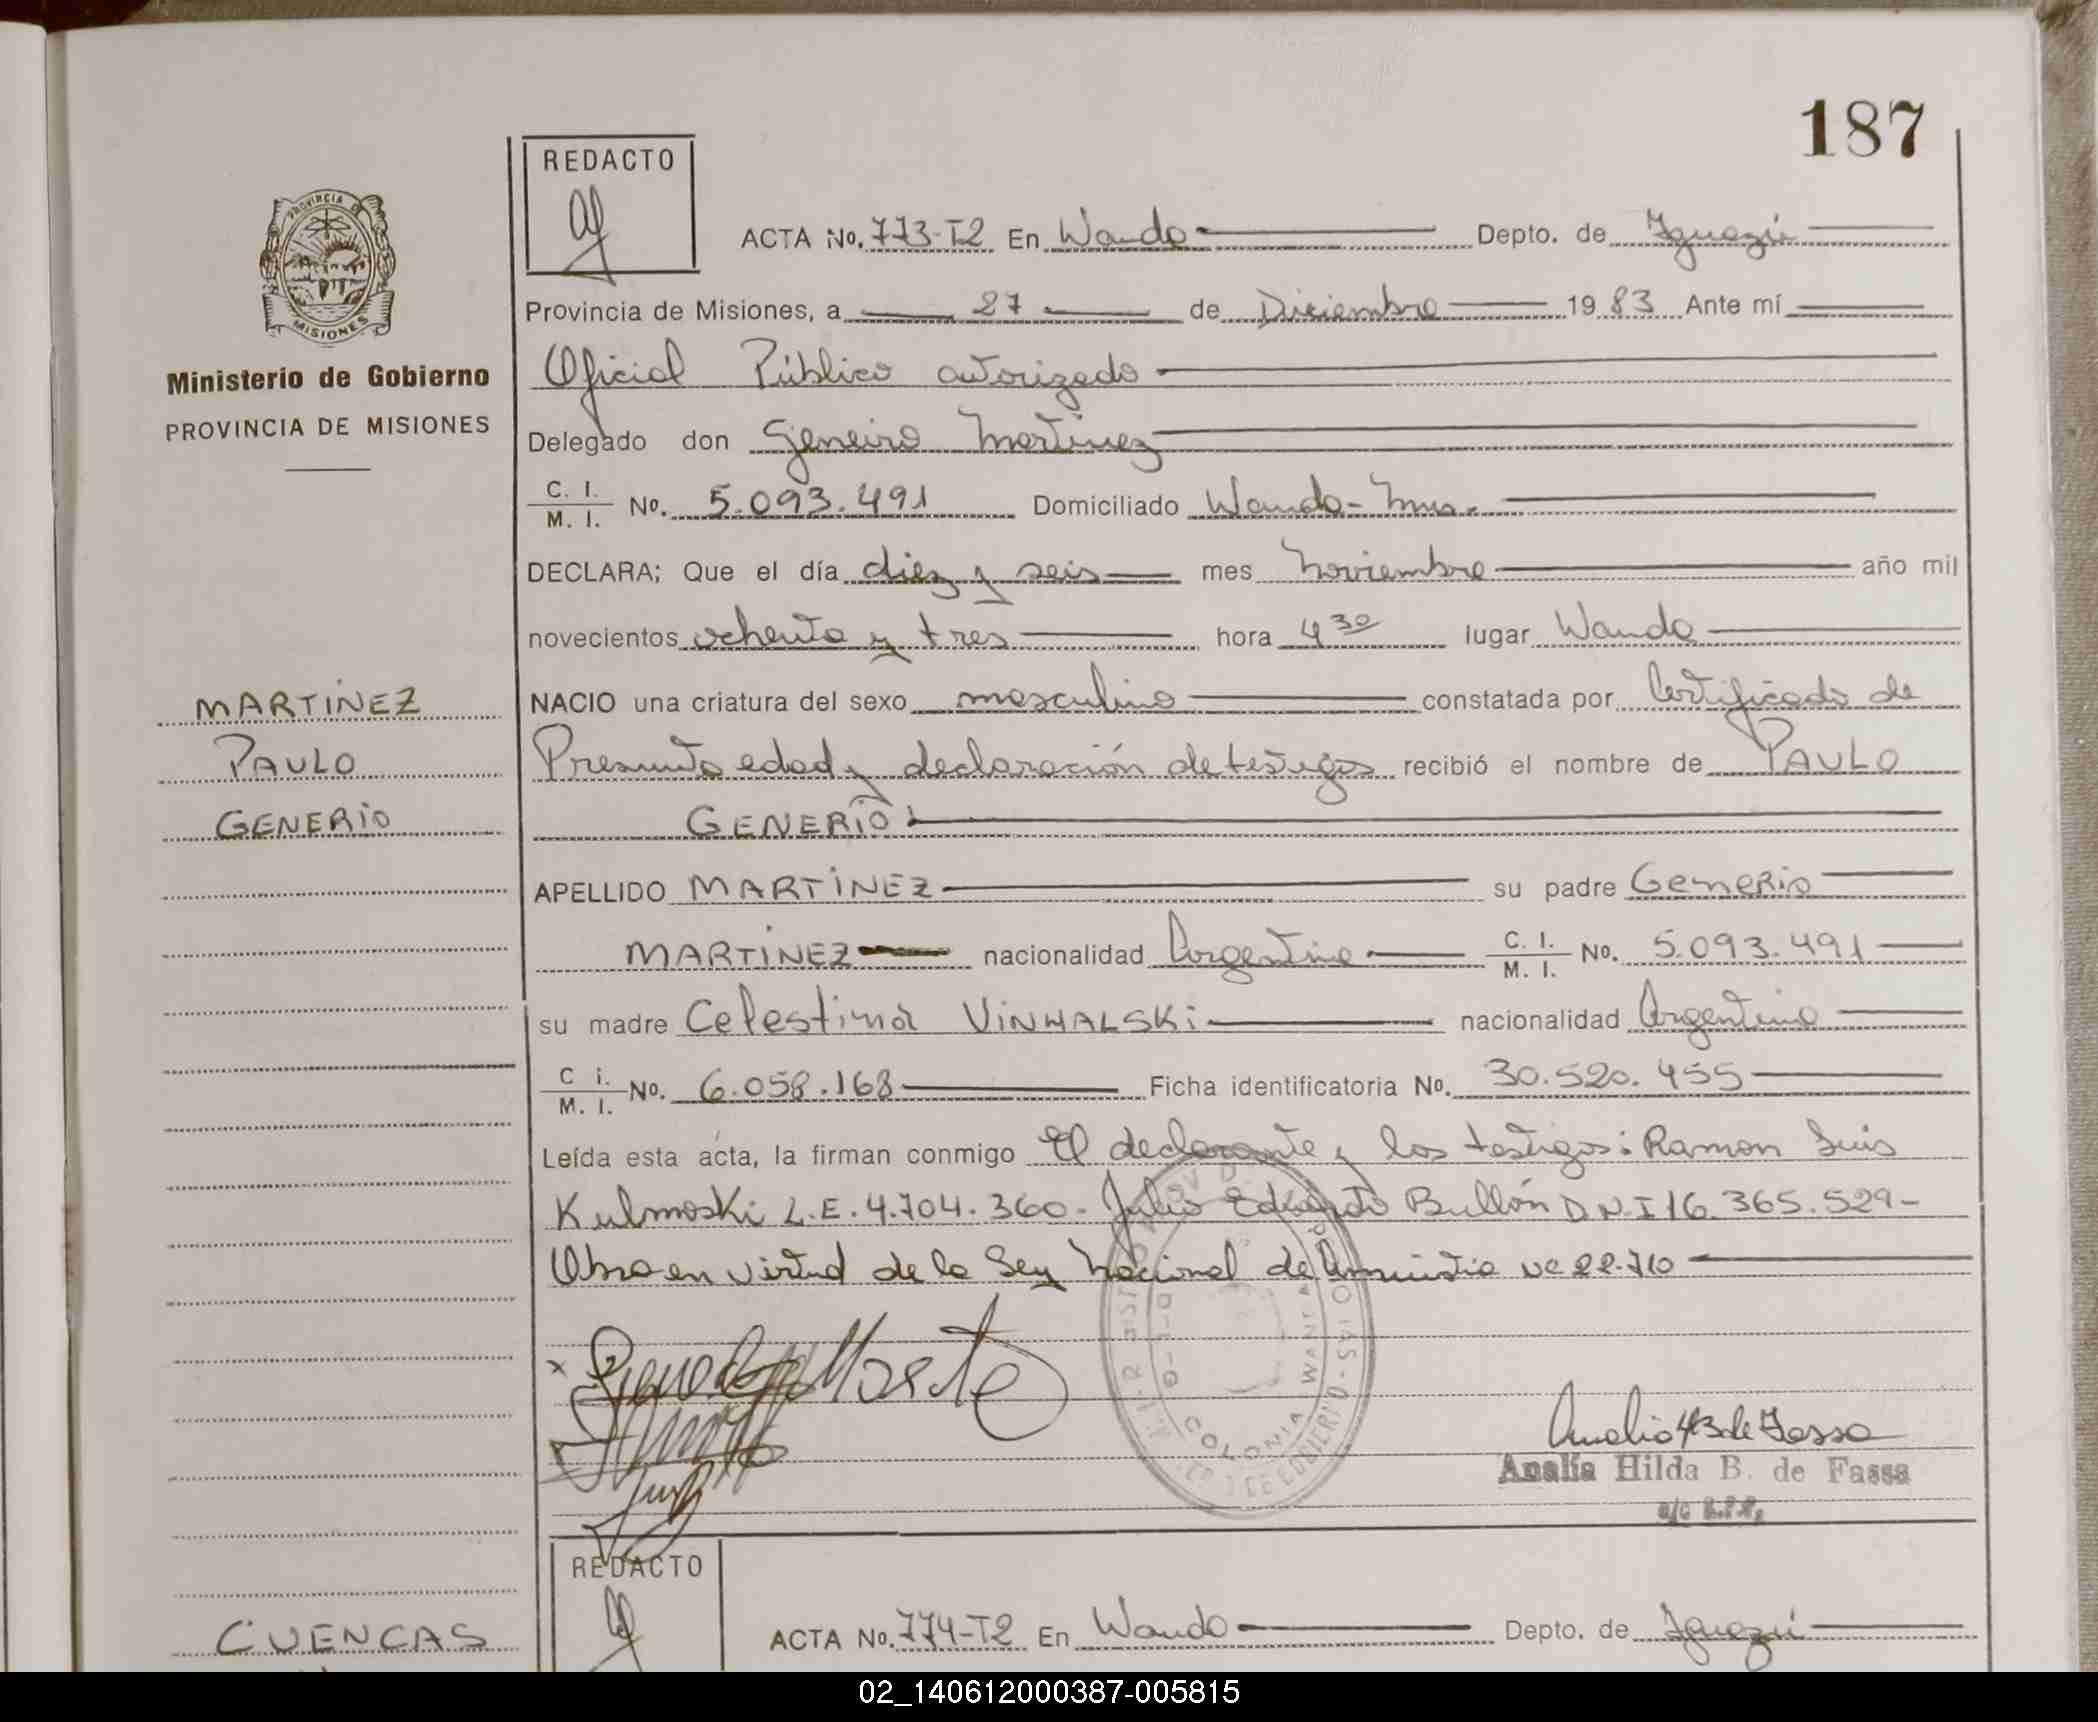 187
REDACTO
ACTA No. 773-T2 En Wanda Depto. de Iguazú
PROVINCIA DE
MISIONES
Provincia de Misiones, a 27 de Diciembre 19 83 Ante mí
Ministerio de Gobierno
PROVINCIA DE MISIONES
Oficial Público autorizado
Delegado don Geneiro Martinez
C. I.
M. I. No. 5.093.491 Domiciliado Wanda - Mnes.
DECLARA; Que el día diez y seis mes Noviembre año mil
novecientos ochenta y tres hora 4 30 lugar Wanda
MARTINEZ
PAULO
GENERIO
NACIO una criatura del sexo masculino constatada por Certificado de
Presunta edad y declaración de testigos recibió el nombre de PAULO
GENERIO
APELLIDO MARTINEZ su padre Generio
MARTINEZ nacionalidad Argentina C. I.
M. I. No. 5.093.491
su madre Celestina VINHALSKi nacionalidad Argentina
C i.
M. I. No. 6.058.168 Ficha identificatoria No. 30.520.455
Leída esta acta, la firman conmigo El declarante y los testigos: Ramon Luis
Kulmoski L.E. 4.704.360 - Julio Eduardo Bullón D.N.I 16.365.529 -
Obra en virtud de la Ley Nacional de Amnistia Nº 22.710
COLONIA WANDA
Analía Hilda B. de Fassa
REDACTO
CUENCAS
ACTA No. 774-T2 En Wanda Depto. de Iguazú
02_140612000387-005815